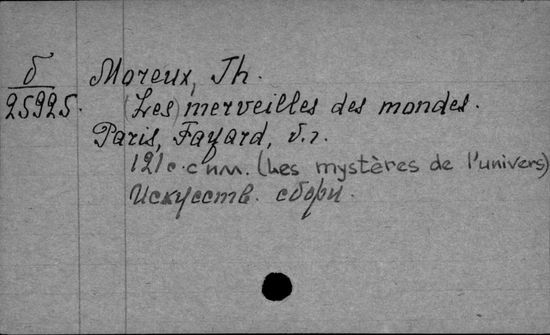 б
25925.
Moreux, Th.
(Les) merveilles des mondes.
Paris, Fayard, б.г.
121с. с илл. (Les mystères de l'univers)
Искусств. сборн.